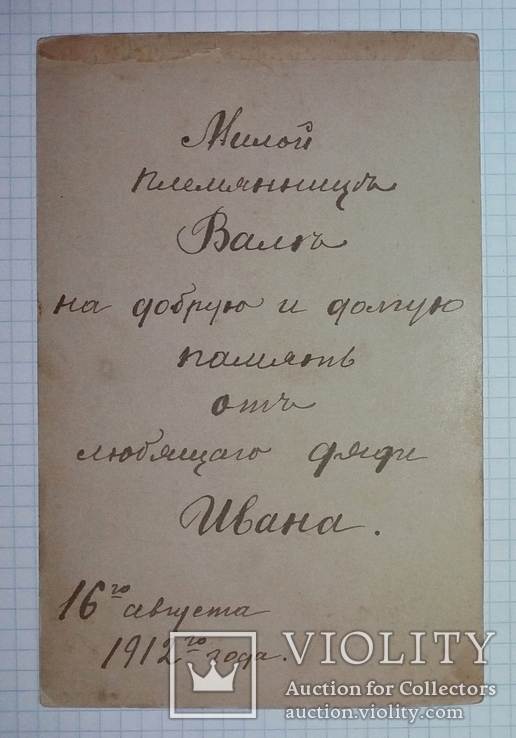 Милой
племянницѣ
Валѣ
на добрую и долгую
память
отъ
любящаго дяди
Ивана.
16го августа
1912го года.
VIOLITY
Auction for Collectors
auction.violity.com